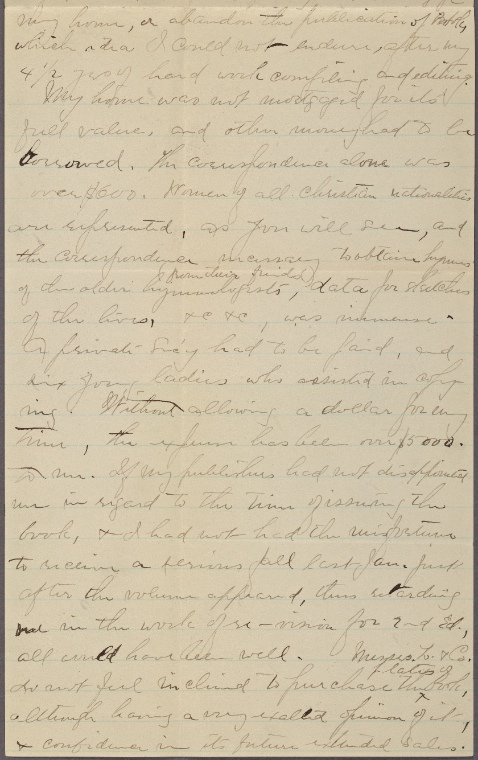 my home, or abandon the publication of book,
which idea I could not endure, after my
4 1/2 years of hard work compiling and editing.
My home was not mortgaged for its
full value, and other money had to be
borrowed. The correspondence alone was
over $600. Women of all Christian nationalities
are represented, as you will see, and
the correspondence necessary to obtain hymns
from their friends
of the older hymnologists, data for sketches
of the lives, &c &c, was immense.
A private Sec'y had to be paid, and
six young ladies who assisted in copy
ing. Without allowing a dollar for my
time, the expense has been over $5000.
to me. If my publishers had not disappointed
me in regard to the time of issuing the
book, & I had not had the misfortune
to receive a serious fall last Jan. just
after the volume appeared, thus retarding
me in the work of re-vision for 2nd Ed.,
all would have been well. Messrs. & Co.
plates of
do not feel inclined to purchase the book,
although having a very exalted opinion of it,
& confidence in its future extended sales.